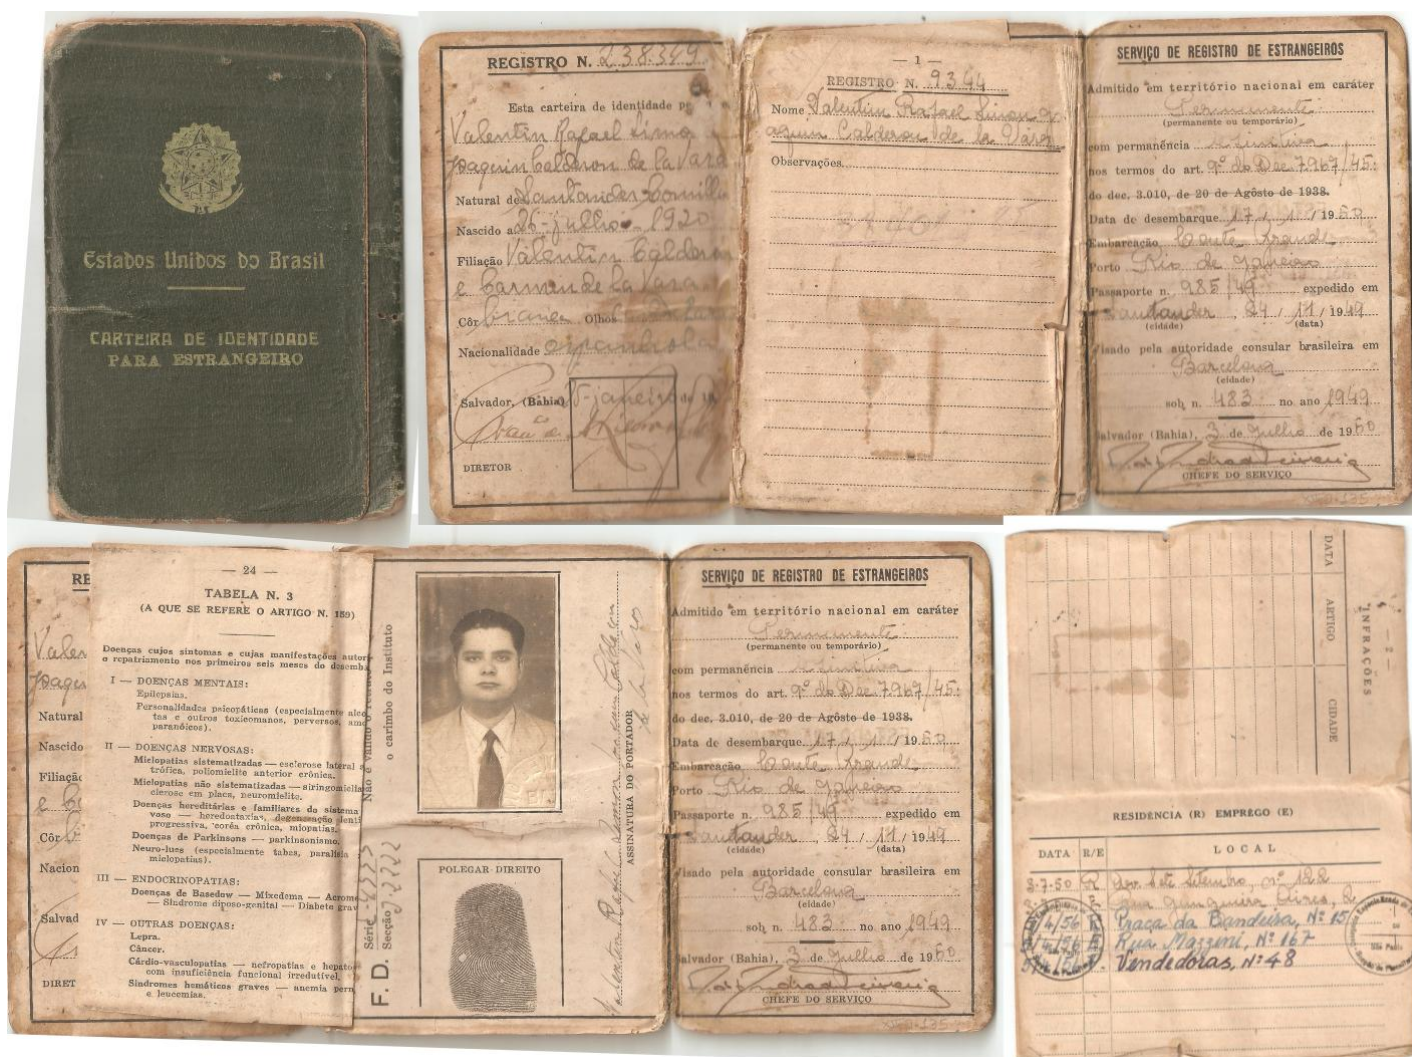 Estados Unidos do Brasil
CARTEIRA DE IDENTIDADE
PARA ESTRANGEIRO
REGISTRO N. 238.349
Esta carteira de identidade
Valentin Rafael Simo
Joaquin Calderon de la Vara
Natural de Santander Comilla
Nascido a 26 julho 1920
Filiação Valentin Calderon
e Carmen de la Vara
Côr branca Olhos
Nacionalidade espanhola
Salvador, (Bahia) janeiro de
DIRETOR
— 1 —
REGISTRO N. 9344
Nome Valentin Rafael Simon
Calderon de la Vara
Observações
SERVIÇO DE REGISTRO DE ESTRANGEIROS
Admitido em território nacional em caráter
Permanente
(permanente ou temporário)
com permanência
nos termos do art. 9º do Dec 7967/45
do dec. 3.010, de 20 de Agôsto de 1938.
Data de desembarque 17 / 1 / 1950
Embarcação Conte Grande
Porto Rio de Janeiro
Passaporte n. 985/49 expedido em
Santander, 24 / 11 / 1949
(cidade) (data)
Visado pela autoridade consular brasileira em
Barcelona
(cidade)
sob n. 483 no ano 1949
Salvador (Bahia), 3 de Julho de 1950
CHEFE DO SERVIÇO
RE
Valen
Joaqu
Natural
Nascido
Filiaçã
e
Côr
Nacion
Salvad
DIRET
— 24 —
TABELA N. 3
(A QUE SE REFERE O ARTIGO N. 159)
Doenças cujos sintomas e cujas manifestações autor
o repatriamento nos primeiros seis meses do desemba
I — DOENÇAS MENTAIS:
Epilepsias.
Personalidades psicopáticas (especialmente alco
tas e outros toxicomanos, perversos, amo
paranóicos).
II — DOENÇAS NERVOSAS:
Mielopatias sistematizadas — esclerose lateral a
trófica, poliomielite anterior crônica.
Mielopatias não sistematizadas — siringomielia
clerose em placa, neuromielite.
Doenças hereditárias e familiares do sistema
voso — heredoataxias, degeneração lenti
progressiva, coréa crônica, miopatias.
Doenças de Parkinsons — parkinsonismo.
Neuro-lues (especialmente tabes, paralisia
mielopatias).
III — ENDOCRINOPATIAS:
Doenças de Basedow — Mixedema — Acrome
— Síndrome diposo-genital — Diabete grav
IV — OUTRAS DOENÇAS:
Lepra.
Câncer.
Cárdio-vasculopatias — nefropatias e hepato
com insuficiência funcional irredutível.
Síndromes hemáticas graves — anemia pern
e leucemias.
Não é válido o retrato
o carimbo do Instituto
F. D.
Série
Secção
POLEGAR DIREITO
Valentin Rafael Simon Calderon
de la Vara
ASSINATURA DO PORTADOR
SERVIÇO DE REGISTRO DE ESTRANGEIROS
Admitido em território nacional em caráter
Permanente
(permanente ou temporário)
com permanência
nos termos do art. 9º do Dec 7967/45
do dec. 3.010, de 20 de Agôsto de 1938.
Data de desembarque 17 / 1 / 1950
Embarcação Conte Grande
Porto Rio de Janeiro
Passaporte n. 985/49 expedido em
Santander, 24 / 11 / 1949
(cidade) (data)
Visado pela autoridade consular brasileira em
Barcelona
(cidade)
sob n. 483 no ano 1949
Salvador (Bahia), 3 de Julho de 1950
CHEFE DO SERVIÇO
— 2 —
INFRAÇÕES
DATA ARTIGO CIDADE
RESIDÊNCIA (R) EMPRÊGO (E)
DATA R/E LOCAL
3-7-50 R Av. Sete Setembro, nº 122
/4/56 Praça da Bandeira, Nº 15
Rua Mazzini, Nº 167
Vendedoras, Nº 48
São Paulo